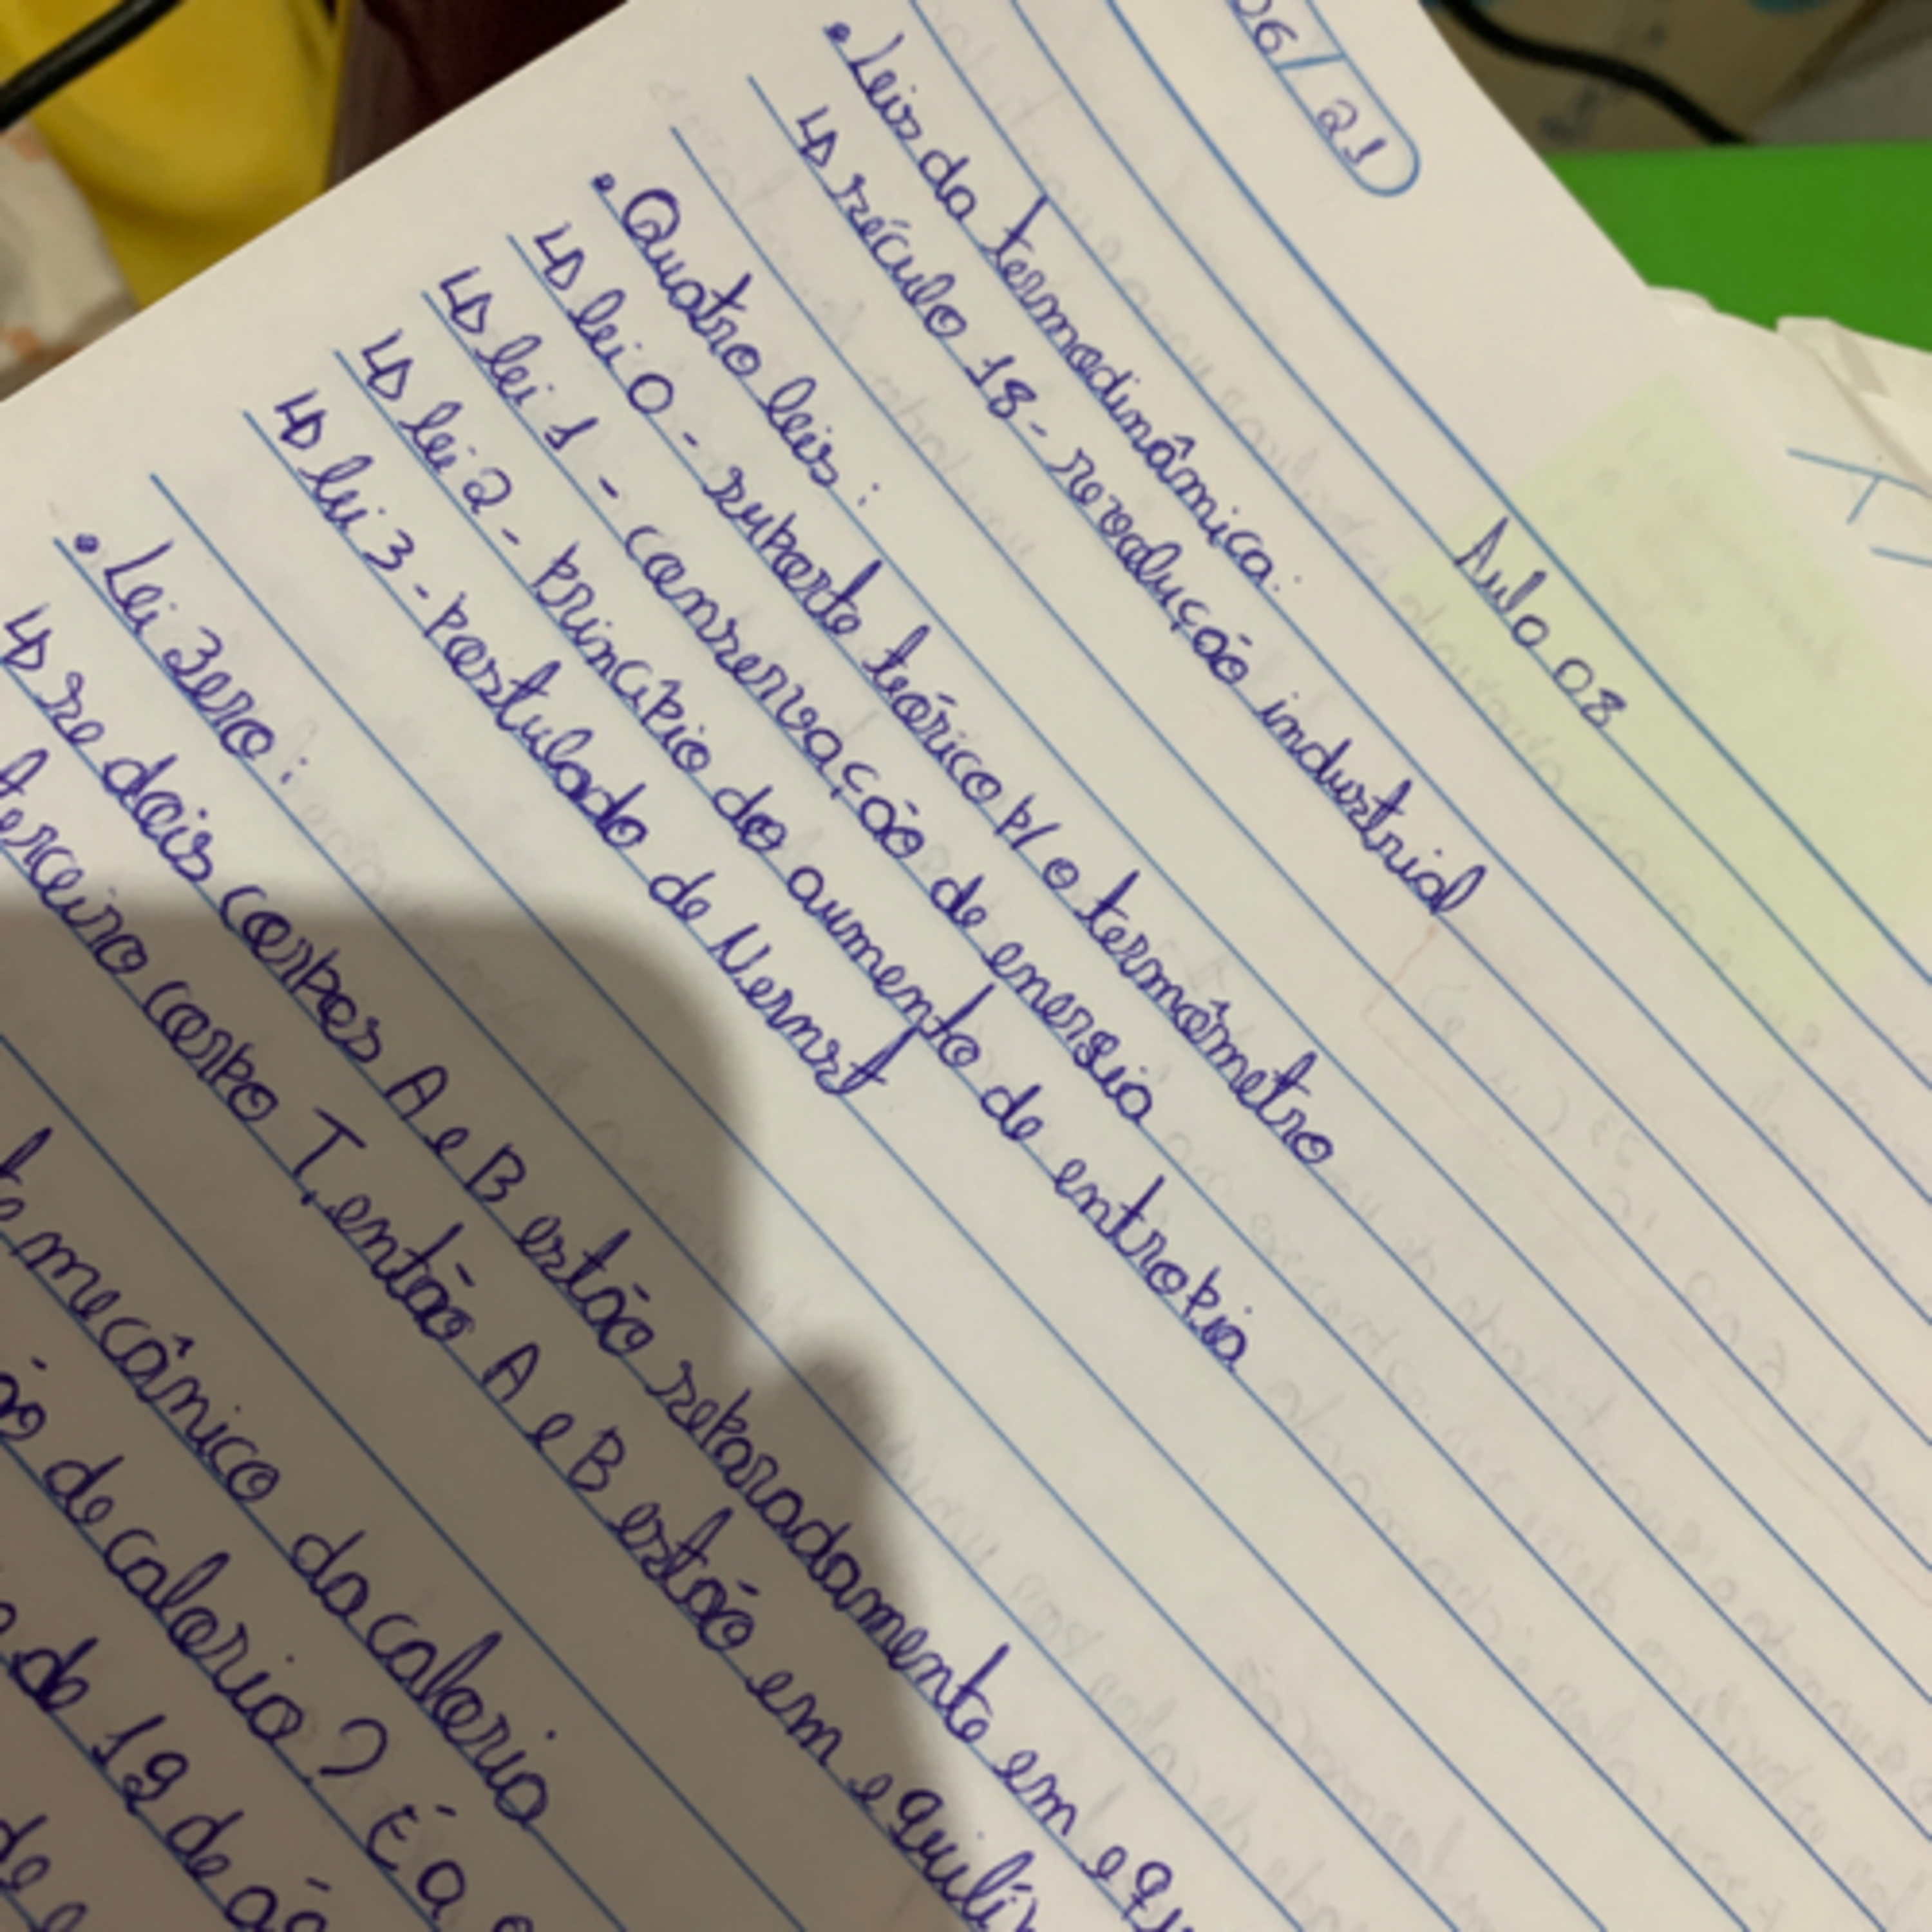 06/21
Aula 08
• Leis da termodinâmica:
↳ século 18 - revolução industrial
• Quatro leis:
↳ lei 0 - suporte teórico p/ o termômetro
↳ lei 1 - conservação de energia
↳ lei 2 - princípio do aumento de entropia
↳ lei 3 - postulado de Nernst
• Lei zero:
↳ se dois corpos A e B estão separadamente em
terceiro corpo T, então A e B estão em
mecânico da caloria
de caloria? É a
de 1g de
de